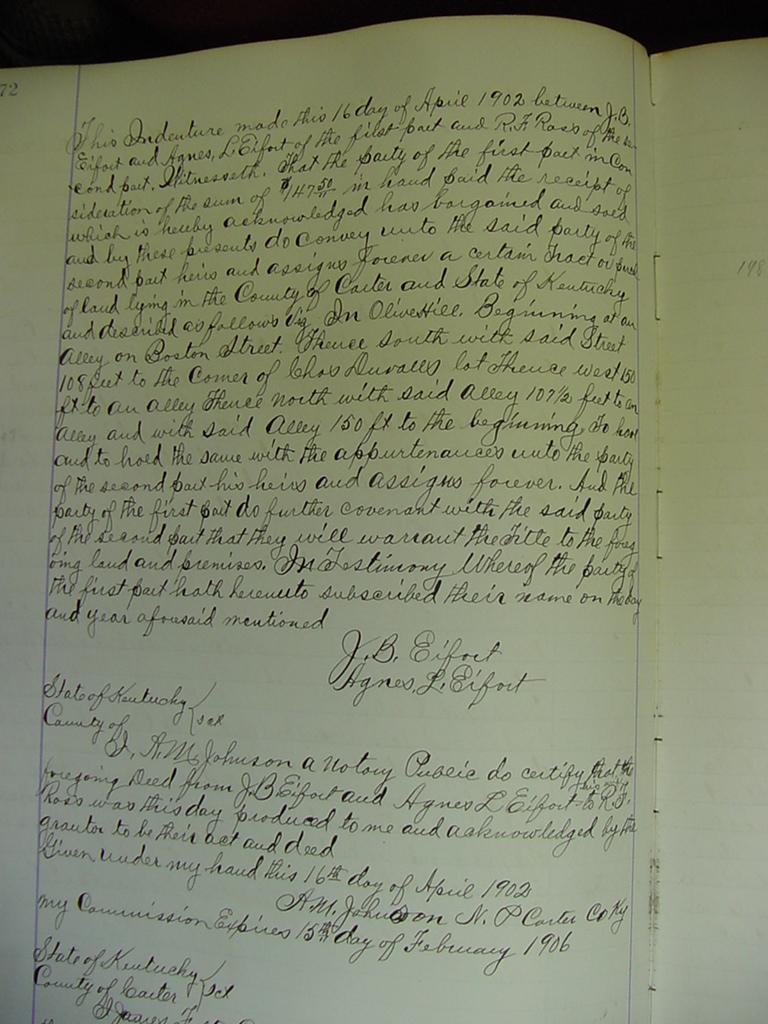 72
This Indenture made this 16 day of April 1902 between J.B.
Eifort and Agnes, L Eifort of the first part and R.F. Ross of the se
cond part. Witnesseth. That the party of the first part in con
sideration of the sum of $147 50 in hand paid the receipt of
which is hereby acknowledged has bargained and sold
and by these presents do convey unto the said party of the
second part heirs and assigns forever a certain Tract or parcel
of land lying in the County of Carter and State of Kentucky
and described as follows viz. In Olive Hill. Beginning at an
Alley on Boston Street. Thence south with said Street
108 feet to the corner of Chas Duvalls lot Thence west 150
ft to an alley Thence north with said Alley 107 1/2 feet to an
Alley and with said Alley 150 ft to the beginning, To have
and to hold the same with the appurtenances unto the party
of the second part his heirs and assigns forever. And the
party of the first part do further covenant with the said party
of the second part that they will warrant the Title to the foreg
oing land and premises. In Testimony Whereof the party of
the first part hath hereunto subscribed their name on the day
and year aforesaid mentioned
J. B. Eifort
Agnes, L. Eifort
State of Kentucky
County of } sct
I, A.M. Johnson a Notary Public do certify that the
foregoing Deed from J.B. Eifort and Agnes L Eifort to R.F.
Ross was this day produced to me and acknowledged by the
grantor to be their act and deed
Given under my hand this 16th day of April 1902
A.M. Johnson N. P Carter Co Ky
my Commission Expires 15th day of February 1906
State of Kentucky
County of Carter } sct
198